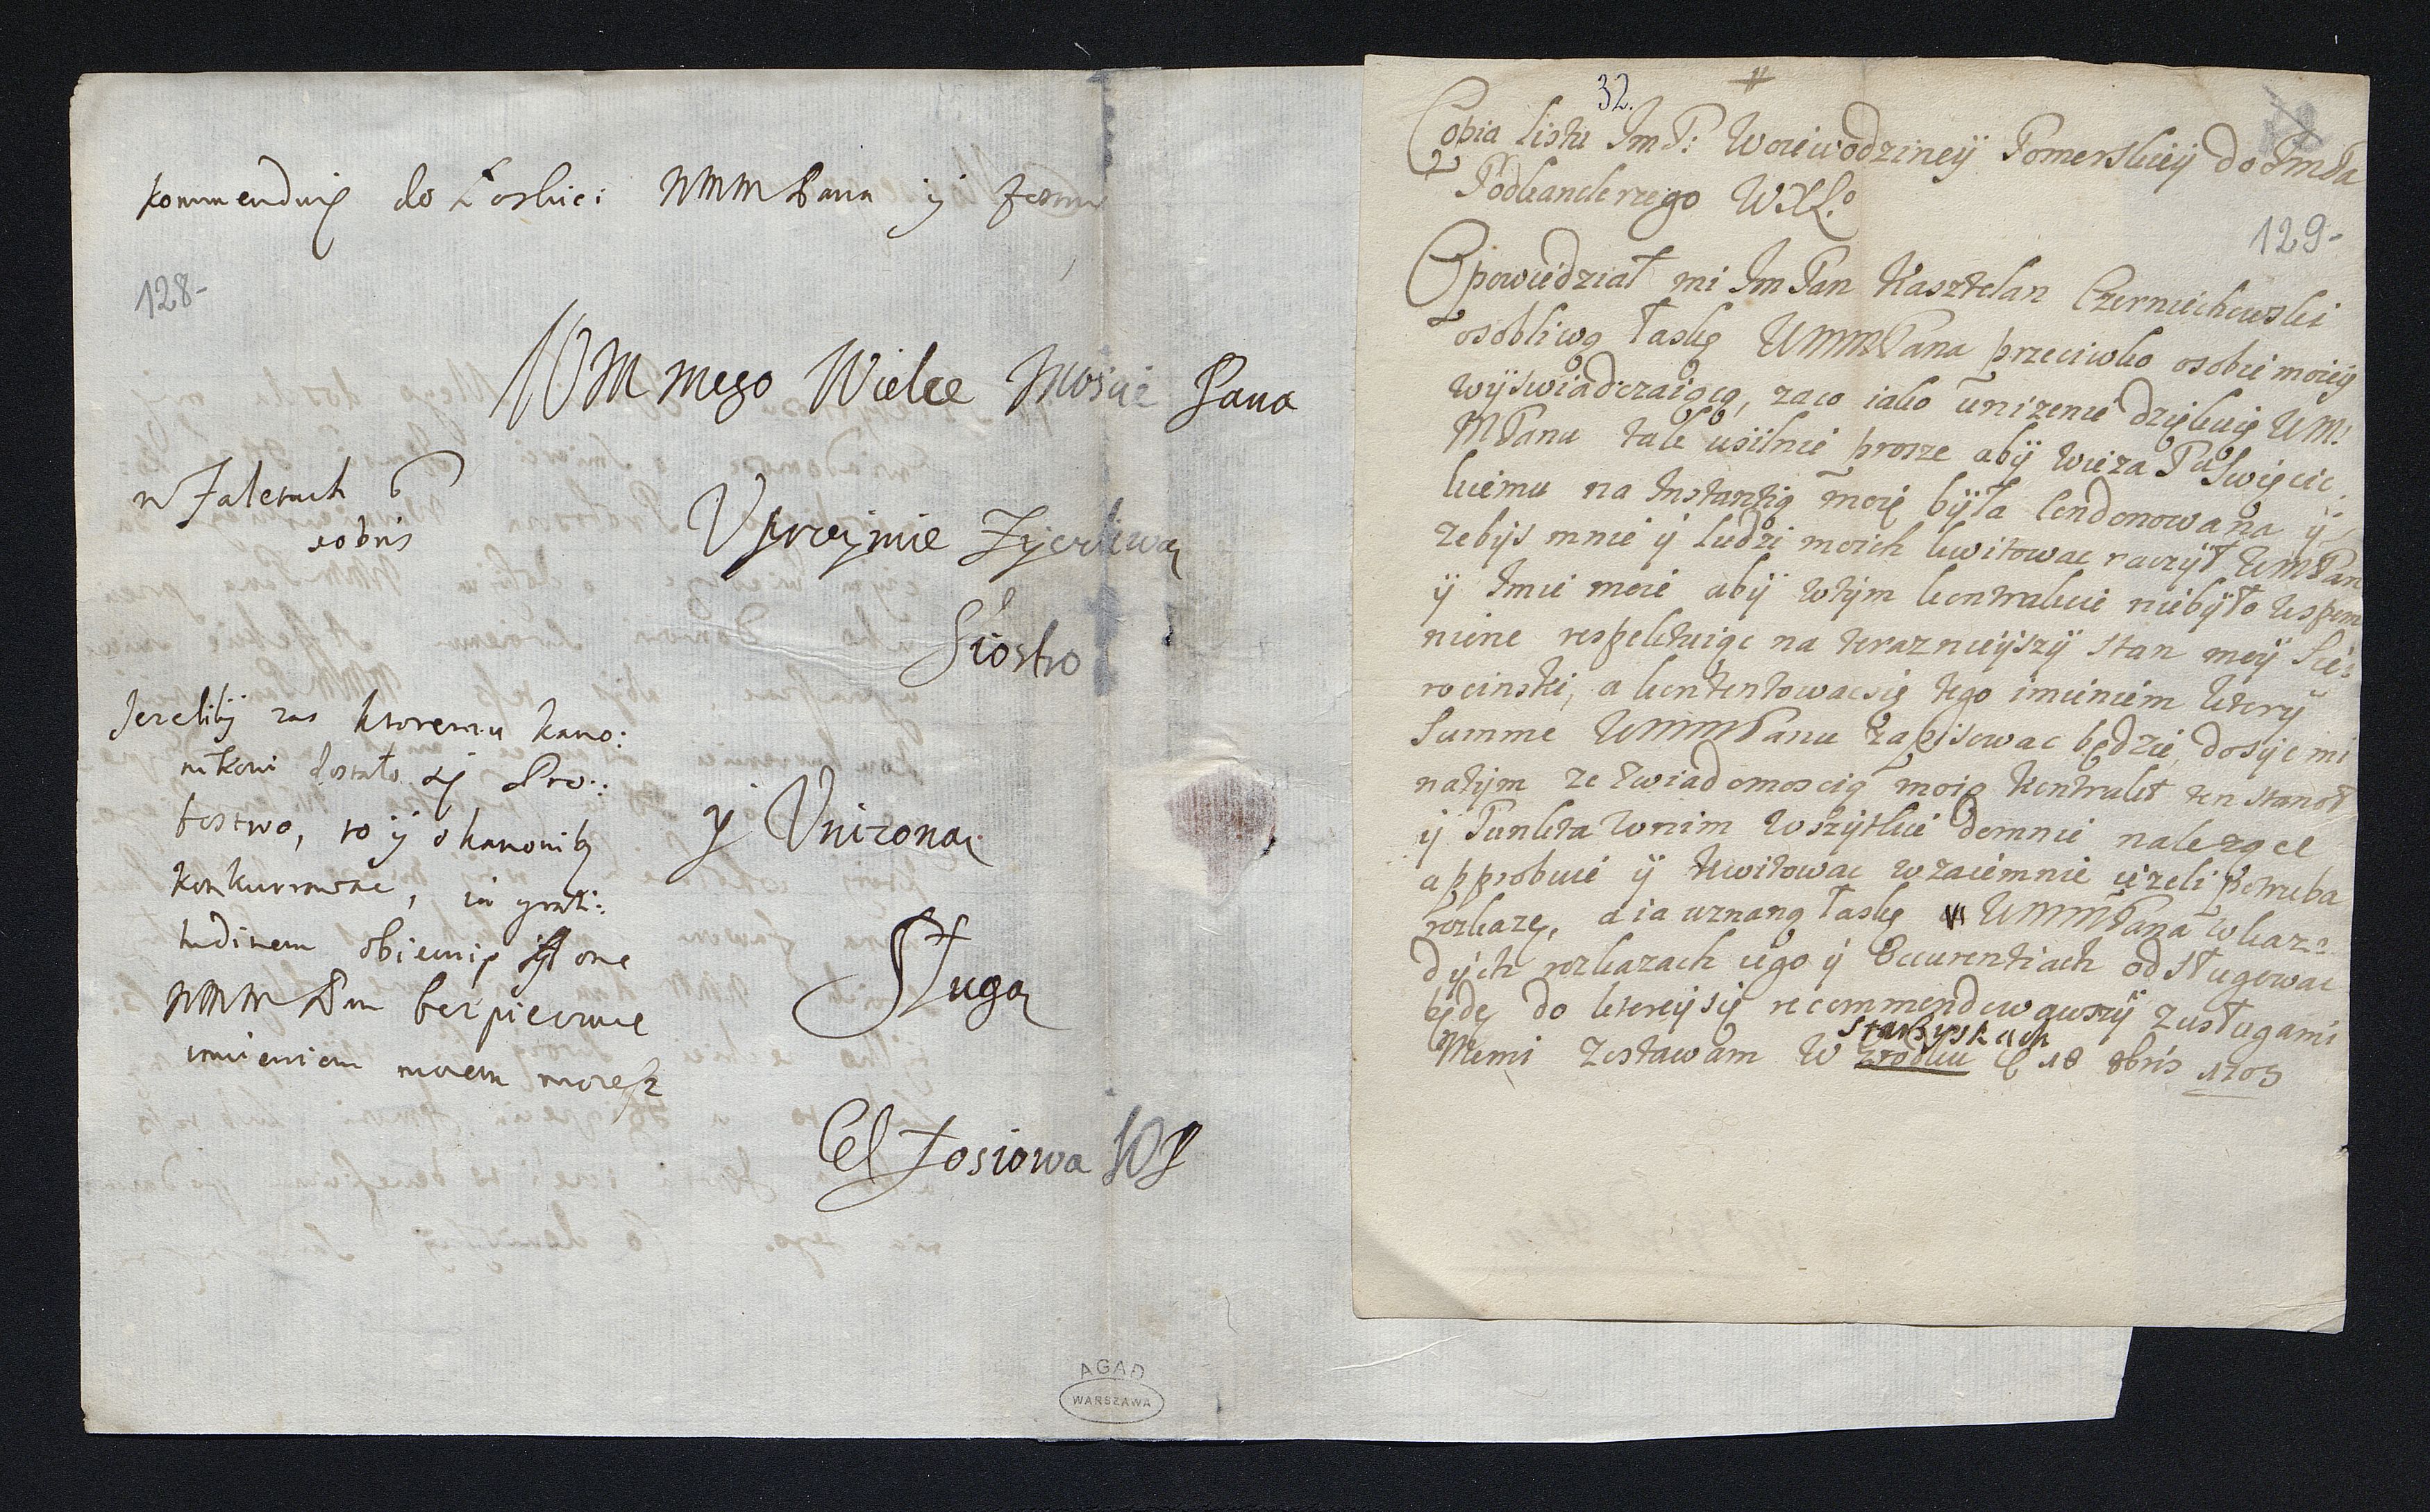 kommenduię do Łaski WMM Pana y
128-
WM mego Wielce Mosci Pana
w Zaletuch
10bris
Uprzeymie Zyczliwa
Siostra
Jezeliby zas ktoremu kano:
nikowi dostało się Pro:
bostwo, to y o kanonią
konkurrowac, in grati:
tudinem obiecuię one
WMM Panu bespiecznie
imieniem moiem
y Unizona
Sługa
Tosiowa WP
AGAD
WARSZAWA
32.
Copia listu Jm P: Woiewodziney Pomerskiey do Jm Pa
Podkanclerzego WXL.
129-
Opowiedział mi Jm Pan Kasztelan Czerniechowski
osobliwą łaskę UMMPana przeciwko osobie moiey
wyswiadczaiącą, zaco iako unizenie dziękuię UM:
MPanu tak usilnie prosze aby wieza Pu Swięcic
kiemu na Instantią moię była condonowana y
zebys mnie y ludzi moich kwitowac raczył UMPan
y Imie moie aby wtym kontrakcie niebyło wspom
nione respektuiąc na teraznieyszy stan mey Sie:
rocinski, a kontentowacsię tego imieniem ktory
Summe UMMMPanu zapisowac będzie, dosyc mi
natym ze zwiadomoscią moią kontrakt ten stanoł
y Punkta wnim wszytkie domnie nalezące
approbuie y kwitowac wzaiemnie iezeli potrzeba
rozkazę, a ia uznaną łaskę UMMMPana wkaz:
dych rozkazach iego y occurentiach odsługowac
będę do ktorey się recommendowawszy zusługami
Memi zostawam w zrodku Starzyskach D 18 8bris 1703